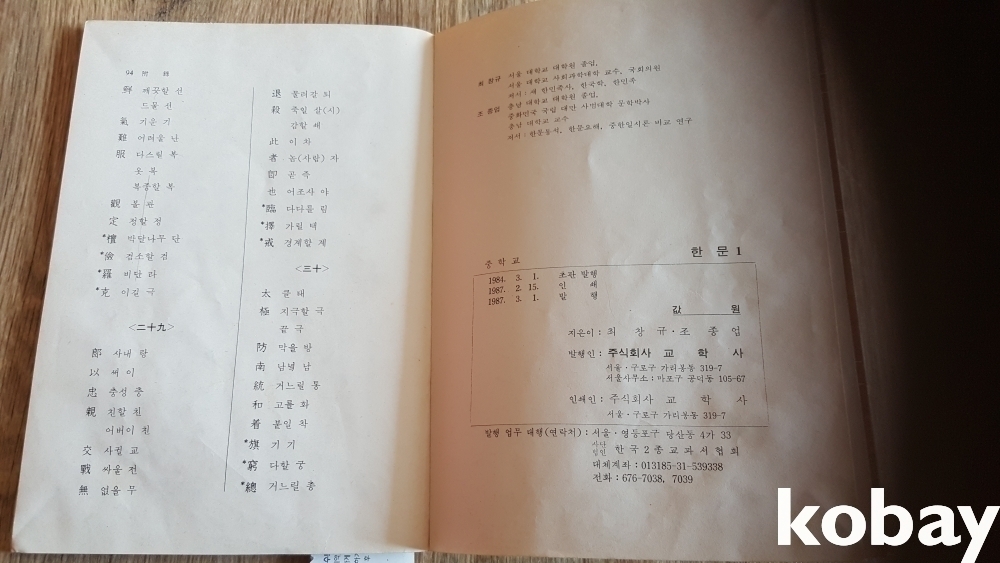 94 附 錄
鮮 깨끗할 선
드물 선
氣 기운 기
難 어려울 난
服 다스릴 복
옷 복
복종할 복
觀 볼 관
定 정할 정
*檀 박달나무 단
*儉 검소할 검
*羅 비단 라
*克 이길 극
<二十九>
郎 사내 랑
以 써 이
忠 충성 충
親 친할 친
어버이 친
交 사귈 교
戰 싸울 전
無 없을 무
退 물러갈 퇴
殺 죽일 살(시)
감할 쇄
此 이 차
者 놈(사람) 자
卽 곧 즉
也 어조사 야
*臨 다다를 림
*擇 가릴 택
*戒 경계할 계
<三十>
太 클 태
極 지극할 극
끝 극
防 막을 방
南 남녘 남
統 거느릴 통
和 고를 화
着 붙일 착
*旗 기 기
*窮 다할 궁
*總 거느릴 총
최 창규 서울 대학교 대학원 졸업,
서울 대학교 사회과학대학 교수, 국회의원
저서 : 새 한민족사, 한국학, 한민족
조 종업 충남 대학교 대학원 졸업,
중화민국 국립 대만 사범대학 문학박사
충남 대학교 교수
저서 : 한문통석, 한문요해, 중한일시론 비교 연구
중학교 한 문 1
1984. 3. 1. 초판 발행
1987. 2. 15. 인 쇄
1987. 3. 1. 발 행
값 원
지은이 : 최 창 규 · 조 종 업
발행인 : 주식회사 교 학 사
서울 · 구로구 가리봉동 319-7
서울사무소 : 마포구 공덕동 105-67
인쇄인 : 주식회사 교 학 사
서울 · 구로구 가리봉동 319-7
발행 업무 대행(연락처) : 서울 · 영등포구 당산동 4가 33
사단법인 한국 2 종교과서협회
대체계좌 : 013185-31-539338
전화 : 676-7038, 7039
kobay